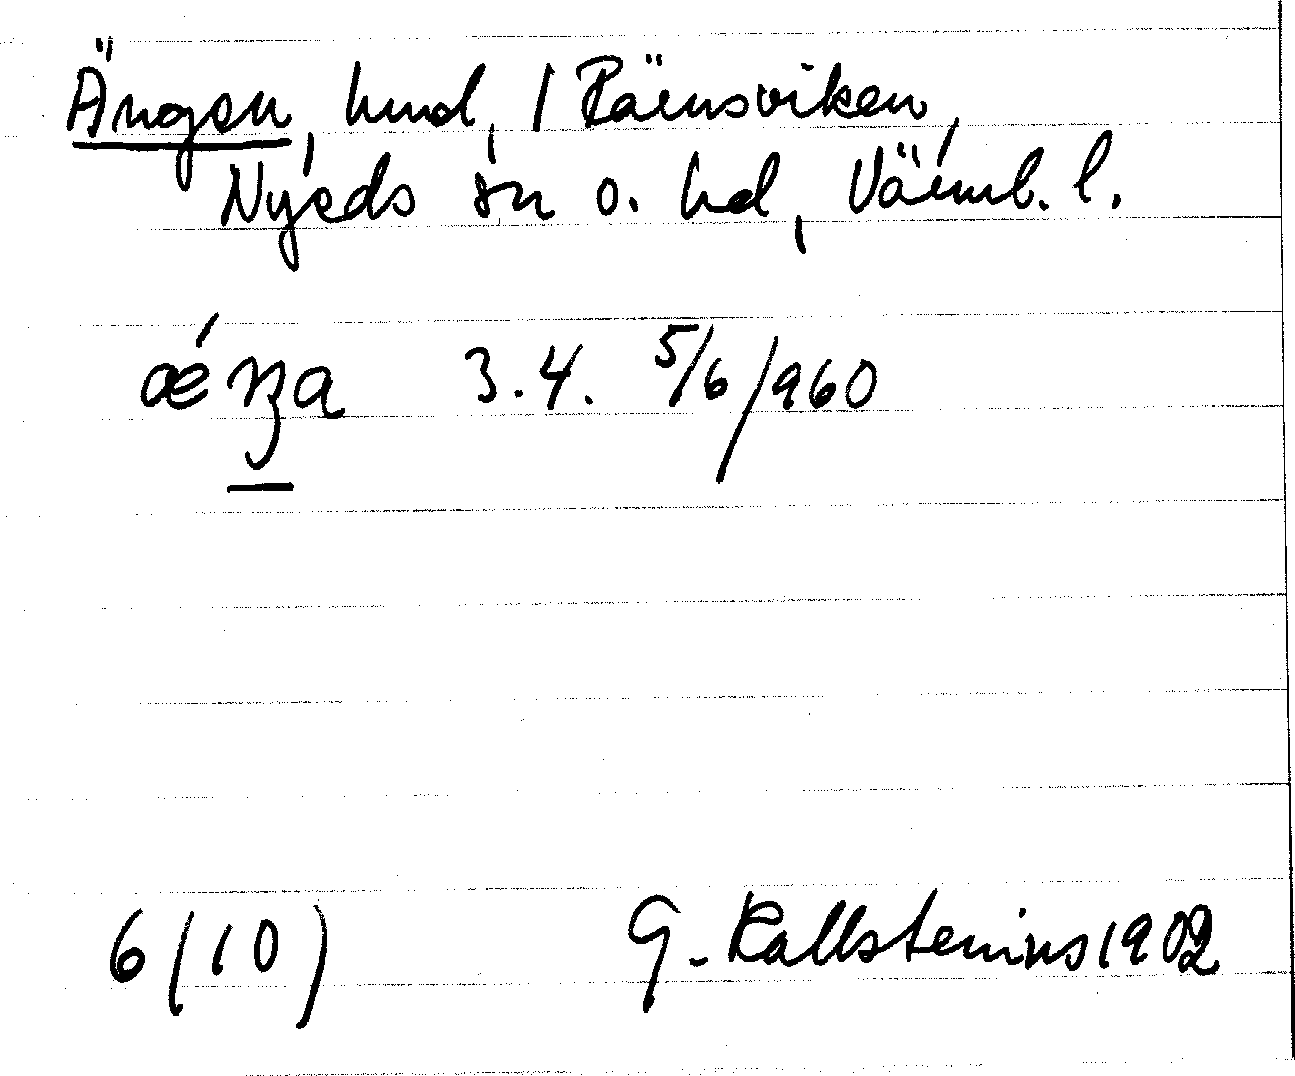 Ängen, hmd, / Rämsviken,
Nyeds sn o. hd, Värml. l.
3.4. 5/6/960
6(10) G. Kallstenius 1902